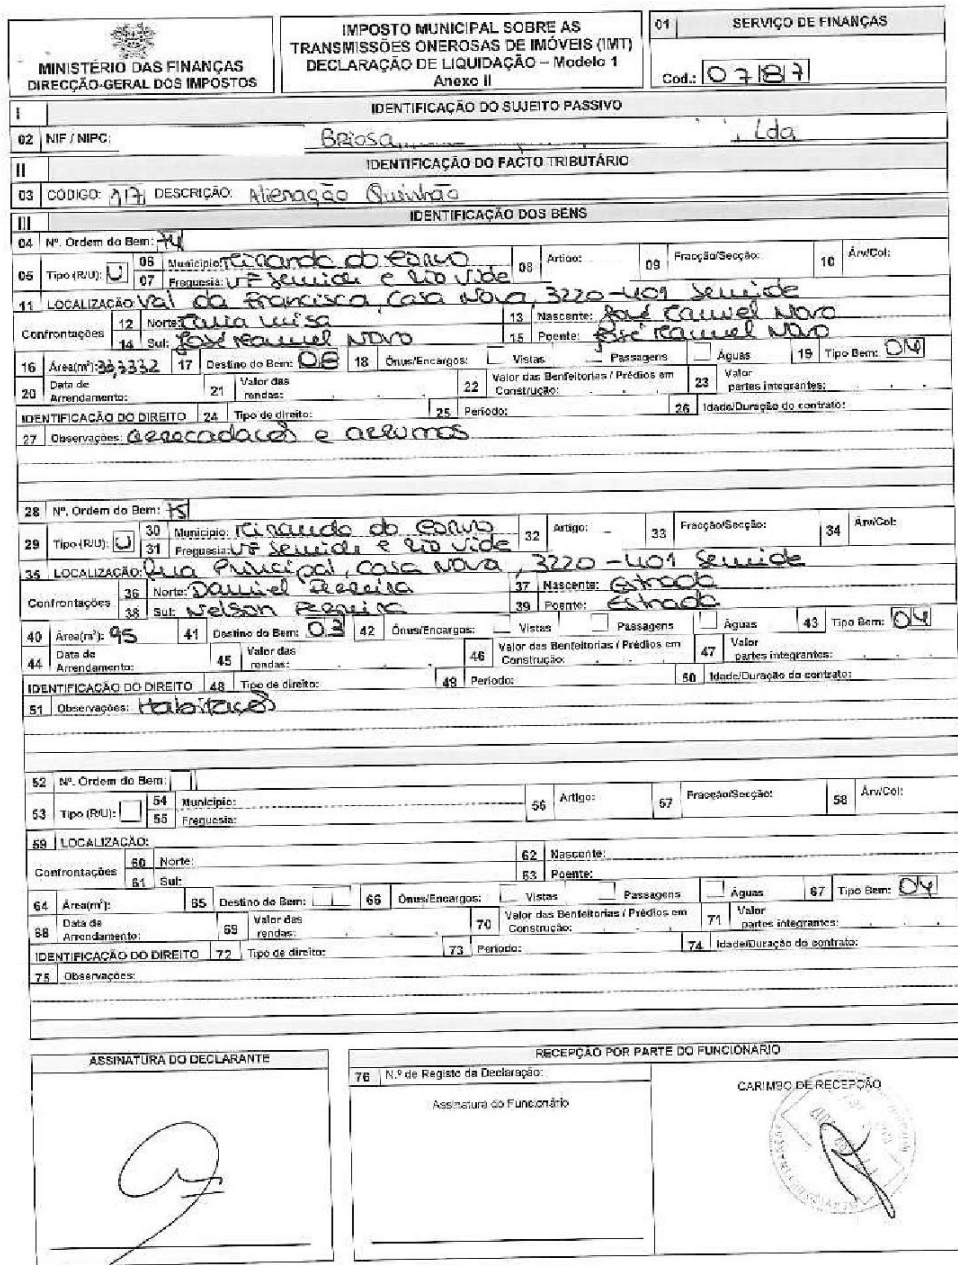 MINISTÉRIO DAS FINANÇAS
DIRECÇÃO-GERAL DOS IMPOSTOS
IMPOSTO MUNICIPAL SOBRE AS
TRANSMISSÕES ONEROSAS DE IMÓVEIS (IMT)
DECLARAÇÃO DE LIQUIDAÇÃO – Modelo 1
Anexo II
01 SERVIÇO DE FINANÇAS
Cod.: 0787
I IDENTIFICAÇÃO DO SUJEITO PASSIVO
02 NIF / NIPC: Briosa , Lda
II IDENTIFICAÇÃO DO FACTO TRIBUTÁRIO
03 CÓDIGO: 17 DESCRIÇÃO: Alienação Quinhão
III IDENTIFICAÇÃO DOS BENS
04 Nº. Ordem do Bem: 74
05 Tipo (R/U): U 06 Município: Miranda do Corvo 08 Artigo: 09 Fracção/Secção: 10 Árv/Col:
07 Freguesia: UF Semide e Rio Vide
11 LOCALIZAÇÃO: Val da Francisca, Casa Nova, 3220-401 Semide
Confrontações 12 Norte: Maria Luisa 13 Nascente: José Manuel Novo
14 Sul: José Manuel Novo 15 Poente: José Manuel Novo
16 Área(m²): 33,3332 17 Destino do Bem: 08 18 Ónus/Encargos: Vistas Passagens Águas 19 Tipo Bem: 04
20 Data de Arrendamento: 21 Valor das rendas: 22 Valor das Benfeitorias / Prédios em Construção: 23 Valor partes integrantes:
IDENTIFICAÇÃO DO DIREITO 24 Tipo de direito: 25 Período: 26 Idade/Duração do contrato:
27 Observações: arrecadação e arrumos
28 Nº. Ordem do Bem: 75
29 Tipo (R/U): U 30 Município: Miranda do Corvo 32 Artigo: 33 Fracção/Secção: 34 Árv/Col:
31 Freguesia: UF Semide e Rio Vide
35 LOCALIZAÇÃO: Rua Principal, Casa Nova, 3220-401 Semide
Confrontações 36 Norte: Daniel Pereira 37 Nascente: Estrada
38 Sul: Nelson Pereira 39 Poente: Estrada
40 Área(m²): 95 41 Destino do Bem: 03 42 Ónus/Encargos: Vistas Passagens Águas 43 Tipo Bem: 04
44 Data de Arrendamento: 45 Valor das rendas: 46 Valor das Benfeitorias / Prédios em Construção: 47 Valor partes integrantes:
IDENTIFICAÇÃO DO DIREITO 48 Tipo de direito: 49 Período: 50 Idade/Duração do contrato:
51 Observações: Habitação
52 Nº. Ordem do Bem:
53 Tipo (R/U): 54 Município: 56 Artigo: 57 Fracção/Secção: 58 Árv/Col:
55 Freguesia:
59 LOCALIZAÇÃO:
Confrontações 60 Norte: 62 Nascente:
61 Sul: 63 Poente:
64 Área(m²): 65 Destino do Bem: 66 Ónus/Encargos: Vistas Passagens Águas 67 Tipo Bem: 04
68 Data de Arrendamento: 69 Valor das rendas: 70 Valor das Benfeitorias / Prédios em Construção: 71 Valor partes integrantes:
IDENTIFICAÇÃO DO DIREITO 72 Tipo de direito: 73 Período: 74 Idade/Duração do contrato:
75 Observações:
ASSINATURA DO DECLARANTE
RECEPÇÃO POR PARTE DO FUNCIONÁRIO
76 N.º de Registo da Declaração:
Assinatura do Funcionário
CARIMBO DE RECEPÇÃO